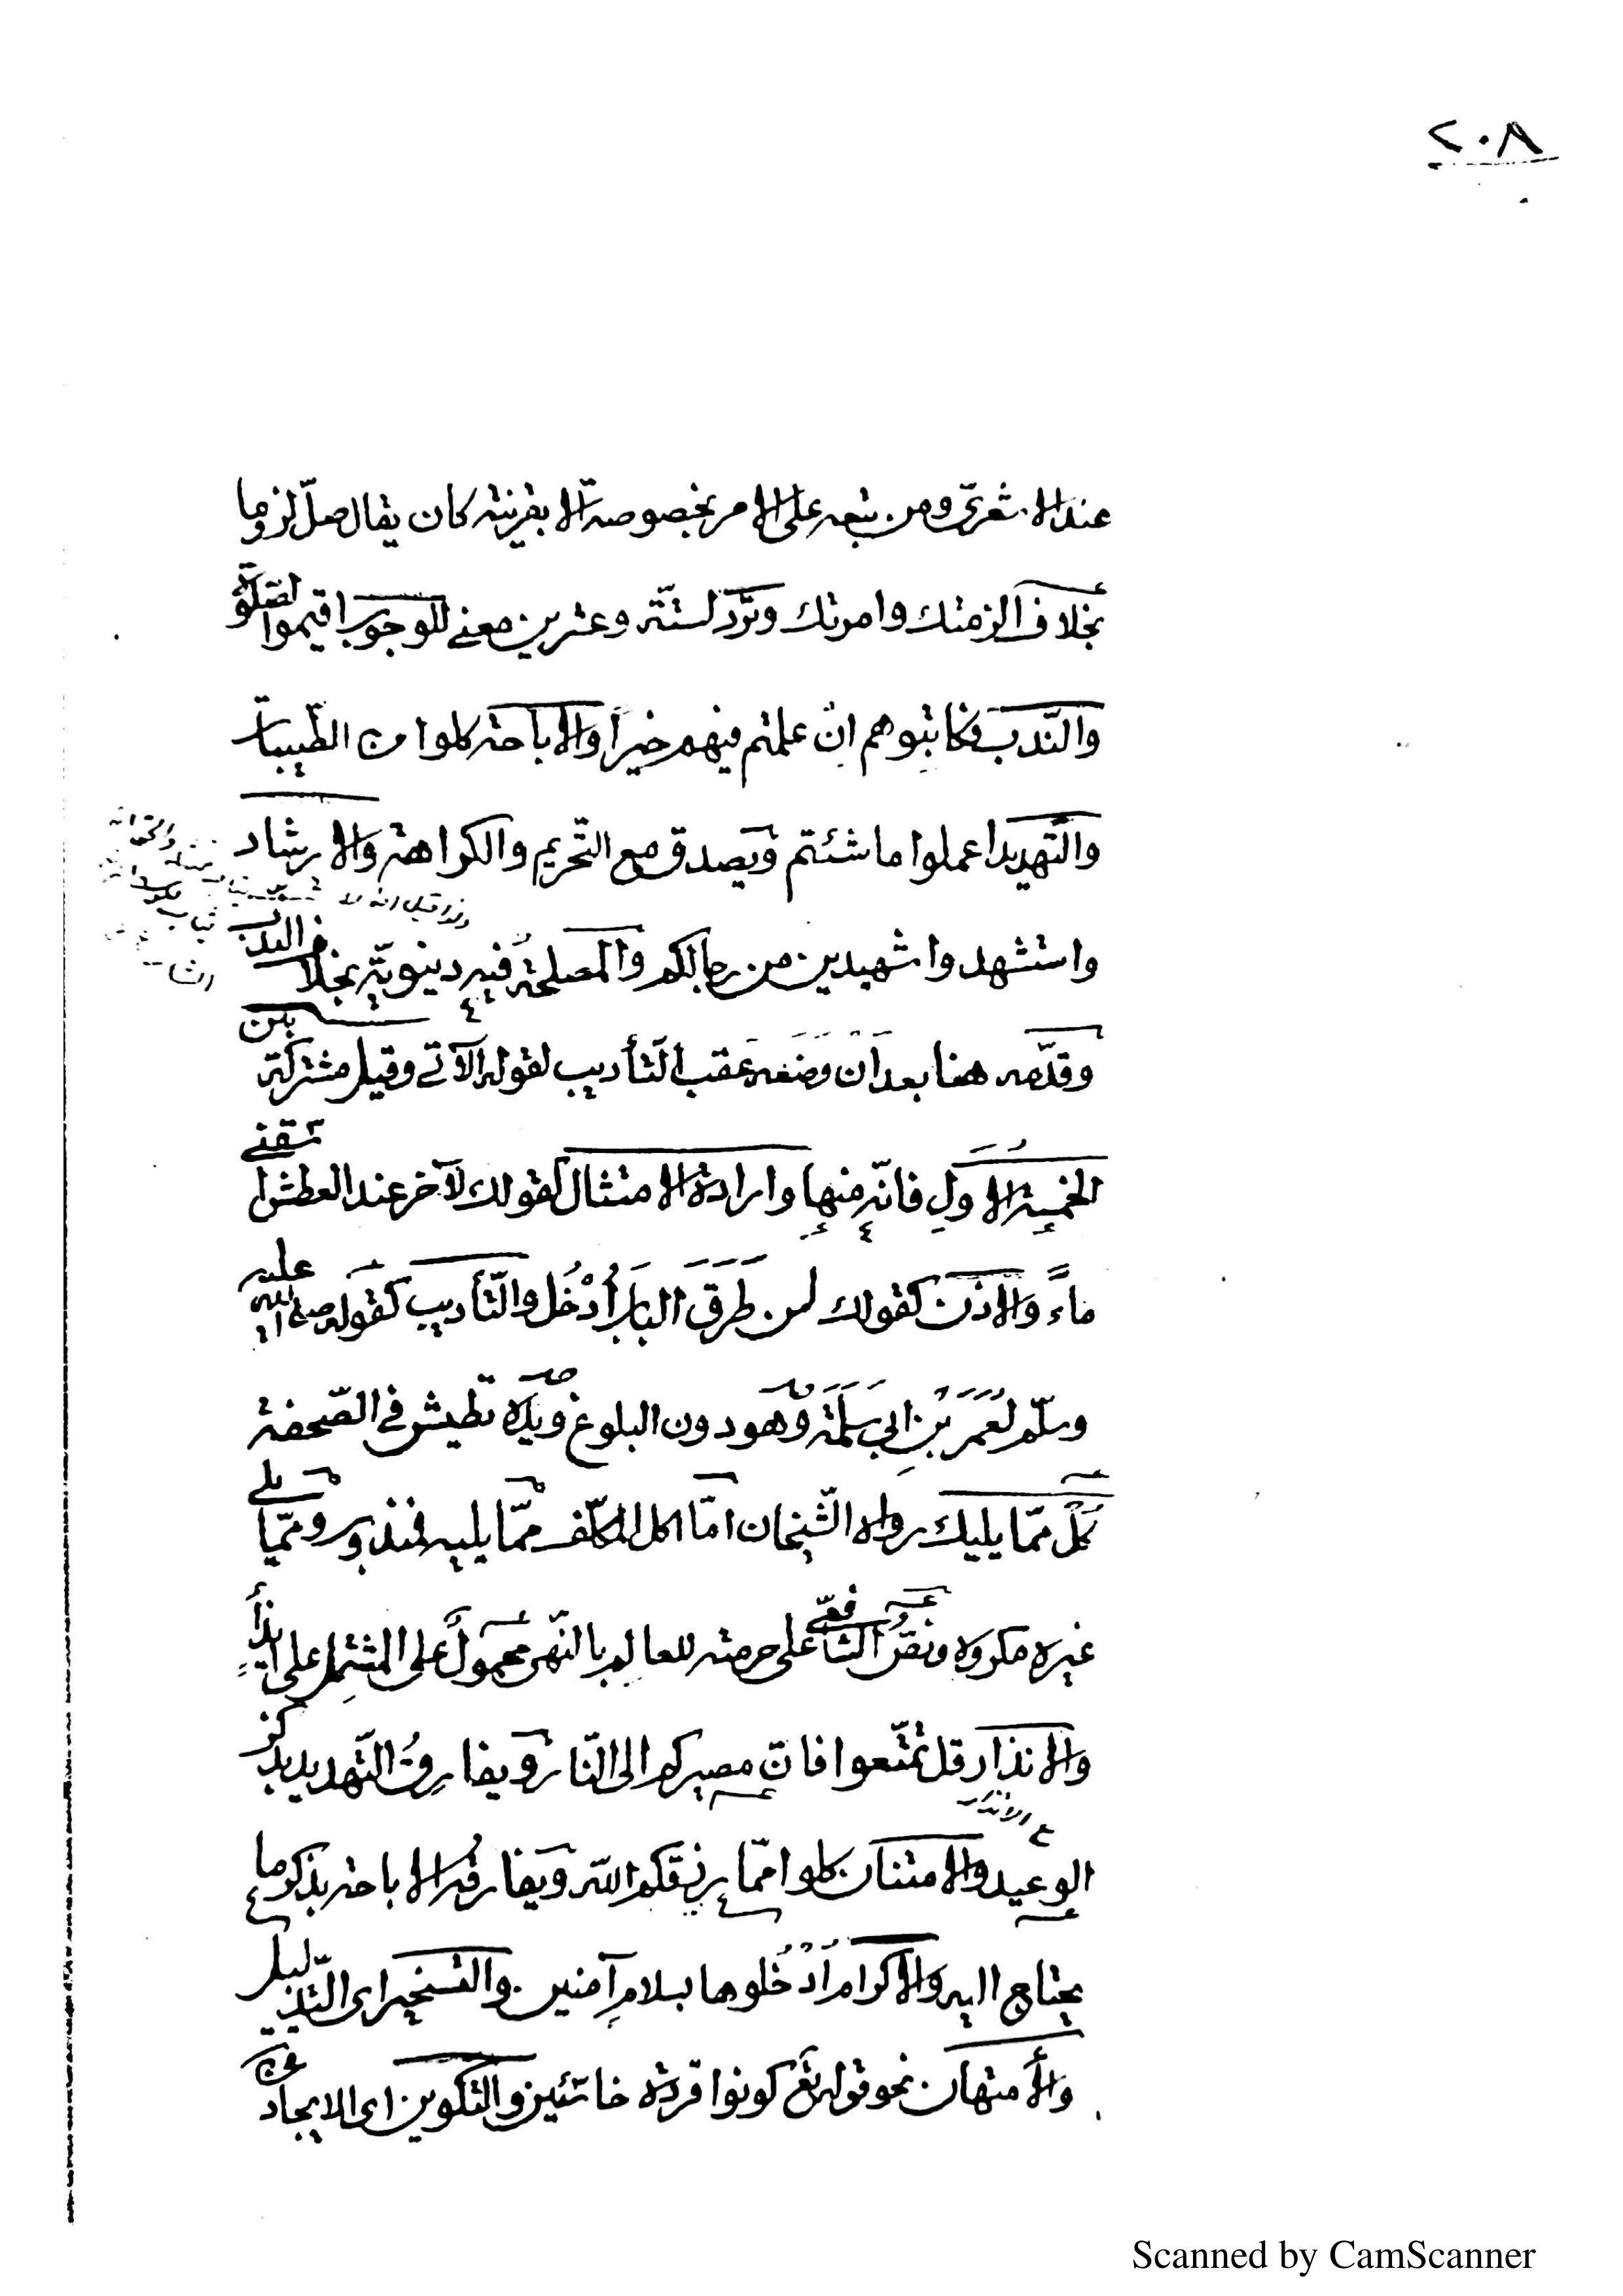 ٢٠٨
عند الاشعرى ومن تبعه على الامر بخصوصه الا بقرينة كان يقال صلّ لزوما
بخلاف الزمتك وامرتك وترد لستّة وعشرين معنى للوجوب اقيموا الصّلوة
والنّدب فكاتبوهم ان علمتم فيهم خيراً والاباحة كلوا من الطّيبات
والتّهديد اعملوا ما شئتم ويصدق مع التّحريم والكراهة والارشاد
واستشهدوا شهيدين من رجالكم والمصلحة فيه دينويّة بخلاف الندب
وقدّمه هنا بعد ان وضعه عقب التّأديب لقوله الآتى وقيل مشتركة بين
الخمسة الاول فانّه منها وارادة الامتثال كقولك لآخر عند العطش اسقنى
ماءً والاذن كقولك لمن طَرَقَ الباب اُدْخُل والتّأديب كقوله صلى الله عليه
وسلّم لعُمَرَ بْنِ ابى سَلَمَة وهو دون البلوغ ويده تطيش فى الصّحفة
كُلْ ممّا يليك رواه الشّيخان امّا اكل المكلّف ممّا يليه فمندوب وممّا يلى
غيره مكروه ونصُّ الشافعىّ على حرمته للعالِم بالنّهى محمولٌ على المشتمِل على ايذاءٍ
والانذار قل تمتّعوا فانّ مصيركم الى النّار ويفارِقُ التّهديد بذكر
الوعيد والامتنان كلوا ممّا رزقكم الله ويفارق الاباحة بذكر ما
يحتاج اليه والاكرام اُدْخُلوها بسلامٍ آمنين والتسخير اى التّذليل
والامتهان نحو قوله تع كونوا قردة خاسئين والتكوين اى الايجاد عن